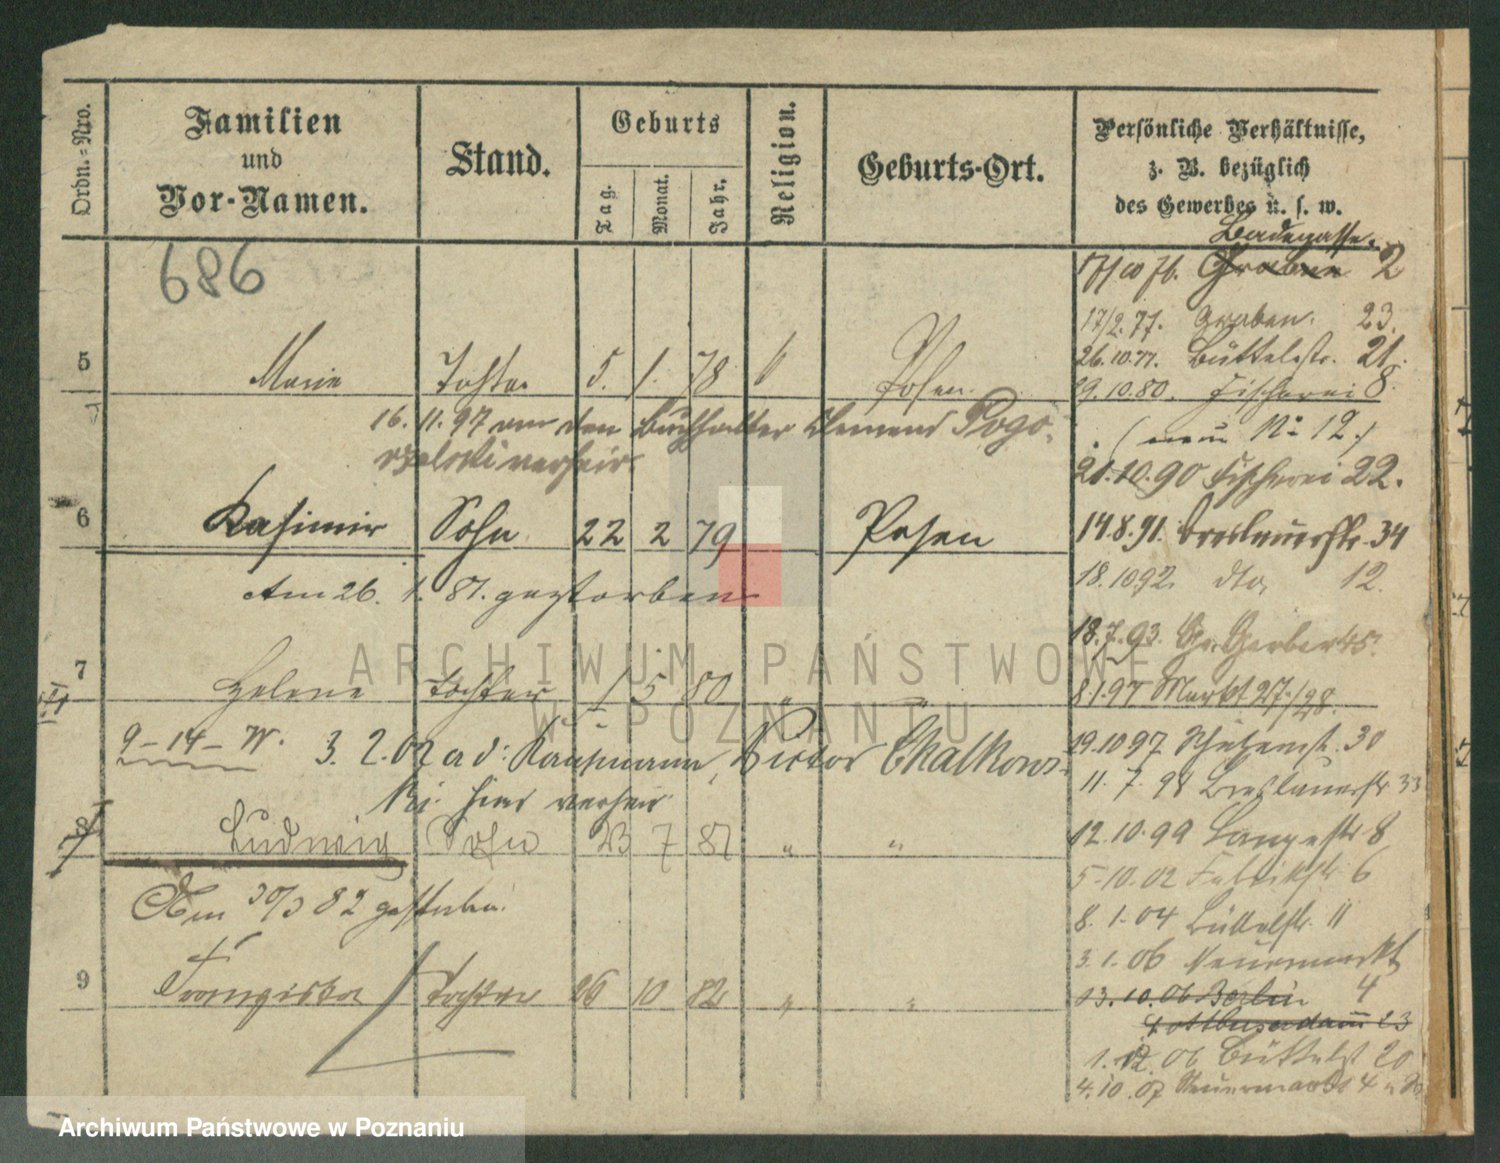 Ordn.-Nro.
Familien
und
Vor-Namen.
Stand.
Geburts
Tag.
Monat.
Jahr.
Religion.
Geburts-Ort.
Persönliche Verhältnisse,
z. B. bezüglich
des Gewerbes u. s. w.
686
Badegasse.
Graben 2
17/2. 77. Graben. 23.
26.10.77. Büttelstr. 21.
5 Marie Tochter 5. 1. 78 Posen
29.10.80. Fischerei 8
16. 11. 97 den Buchhalter Clemens Pogo-
(neu No 12.)
rzelski verheir.
21.10.90 Fischerei 22.
6 Kasimir Sohn 22 2 79 Posen
14.8.91. Breslauerstr. 34
Am 26. 1. 81. gestorben
18.10.92. dto 12.
18.7.93. Gr. Gerberstr.
7 Helene Tochter 1 5 80 "
8.1.97 Markt 27/28.
9-14-W. 3. 2. 02 a d. Kaufmann Victor Chalkows-
19.10 97 Schützenstr. 30
ki hier verheir.
11. 7. 98 Breslauerstr 33
8 Ludwig Sohn 23 7 81 " "
12.10.99 Langestr 8
5.10.02 Fabrikstr 6
Am 30/3 82 gestorben.
8. 1. 04 Büttelstr. 11
3. 1. 06 Neuermarkt
9 Franziska Tochter 26 10 82 " "
13.10.06 Berlin 4
Kottbuserdamm 23
1. 12. 06 Büttelst 20
4. 10. 07 Neuermarkt 4
ARCHIWUM PAŃSTWOWE
W POZNANIU
Archiwum Państwowe w Poznaniu